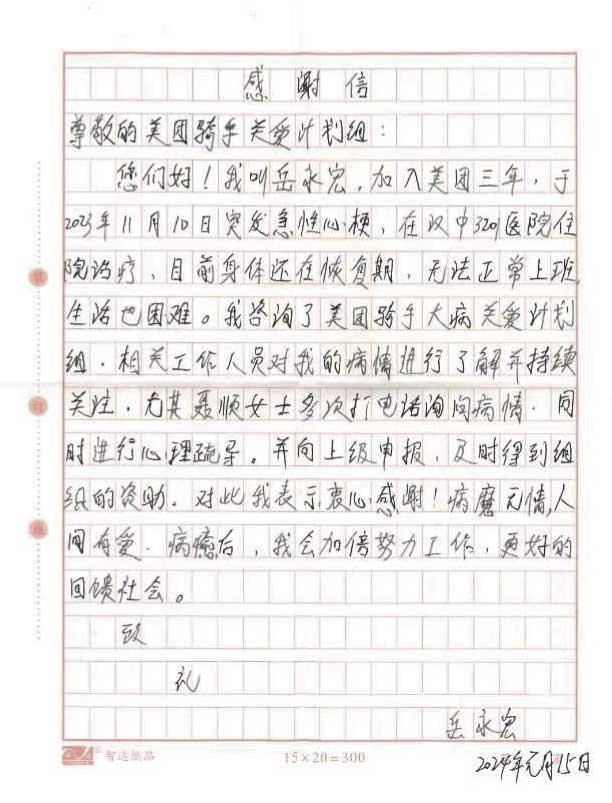 感谢信
尊敬的美团骑手关爱计划组：
您们好！我叫岳永宏，加入美团三年，于
2023年11月10日突发急性心梗，在汉中3201医院住
院治疗，目前身体还在恢复期，无法正常上班，
生活也困难。我咨询了美团骑手大病关爱计划
组，相关工作人员对我的病情进行了解并持续
关注，尤其聂顺女士多次打电话询问病情，同
时进行心理疏导。并向上级申报，及时得到组
织的资助，对此我表示衷心感谢！病魔无情，人
间有爱，病愈后，我会加倍努力工作，更好的
回馈社会。
致
礼
岳永宏
智达纸品 15×20=300
2024年元月15日
装
订
线